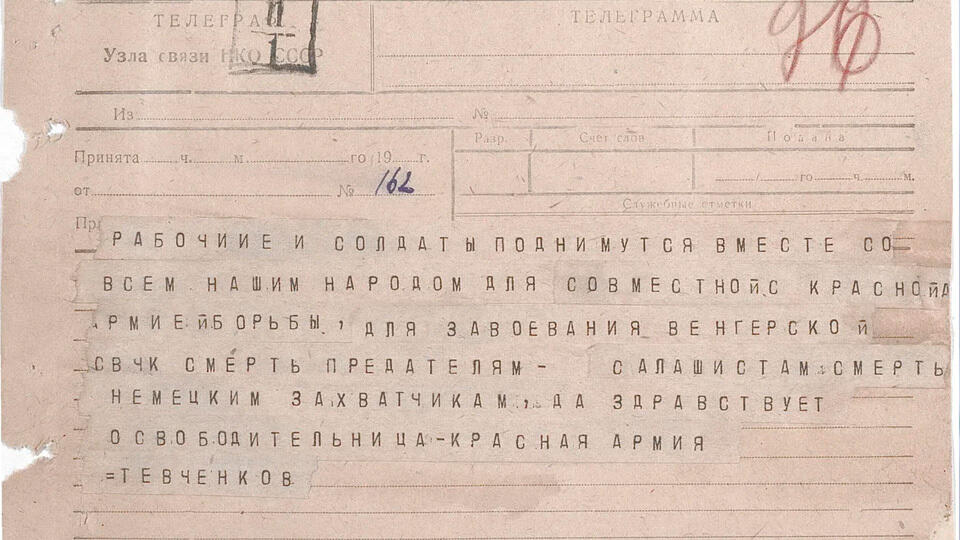 ТЕЛЕГРАФ
Узла связи НКО СССР
ТЕЛЕГРАММА
Из №
Принята ч. м. го 19 г.
от № 162
Разр. Счет слов Подана
го ч. м.
Служебные отметки
РАБОЧИИЕ И СОЛДАТЫ ПОДНИМУТСЯ ВМЕСТЕ СО
ВСЕМ НАШИМ НАРОДОМ ДЛЯ СОВМЕСТНОЙ С КРАСНОЙ А
РМИЕЙ БОРЬБЫ, ДЛЯ ЗАВОЕВАНИЯ ВЕНГЕРСКОЙ
СВЧК СМЕРТЬ ПРЕДАТЕЛЯМ- САЛАШИСТАМ СМЕРТЬ
НЕМЕЦКИМ ЗАХВАТЧИКАМ, ДА ЗДРАВСТВУЕТ
ОСВОБОДИТЕЛЬНИЦА-КРАСНАЯ АРМИЯ
=ТЕВЧЕНКОВ